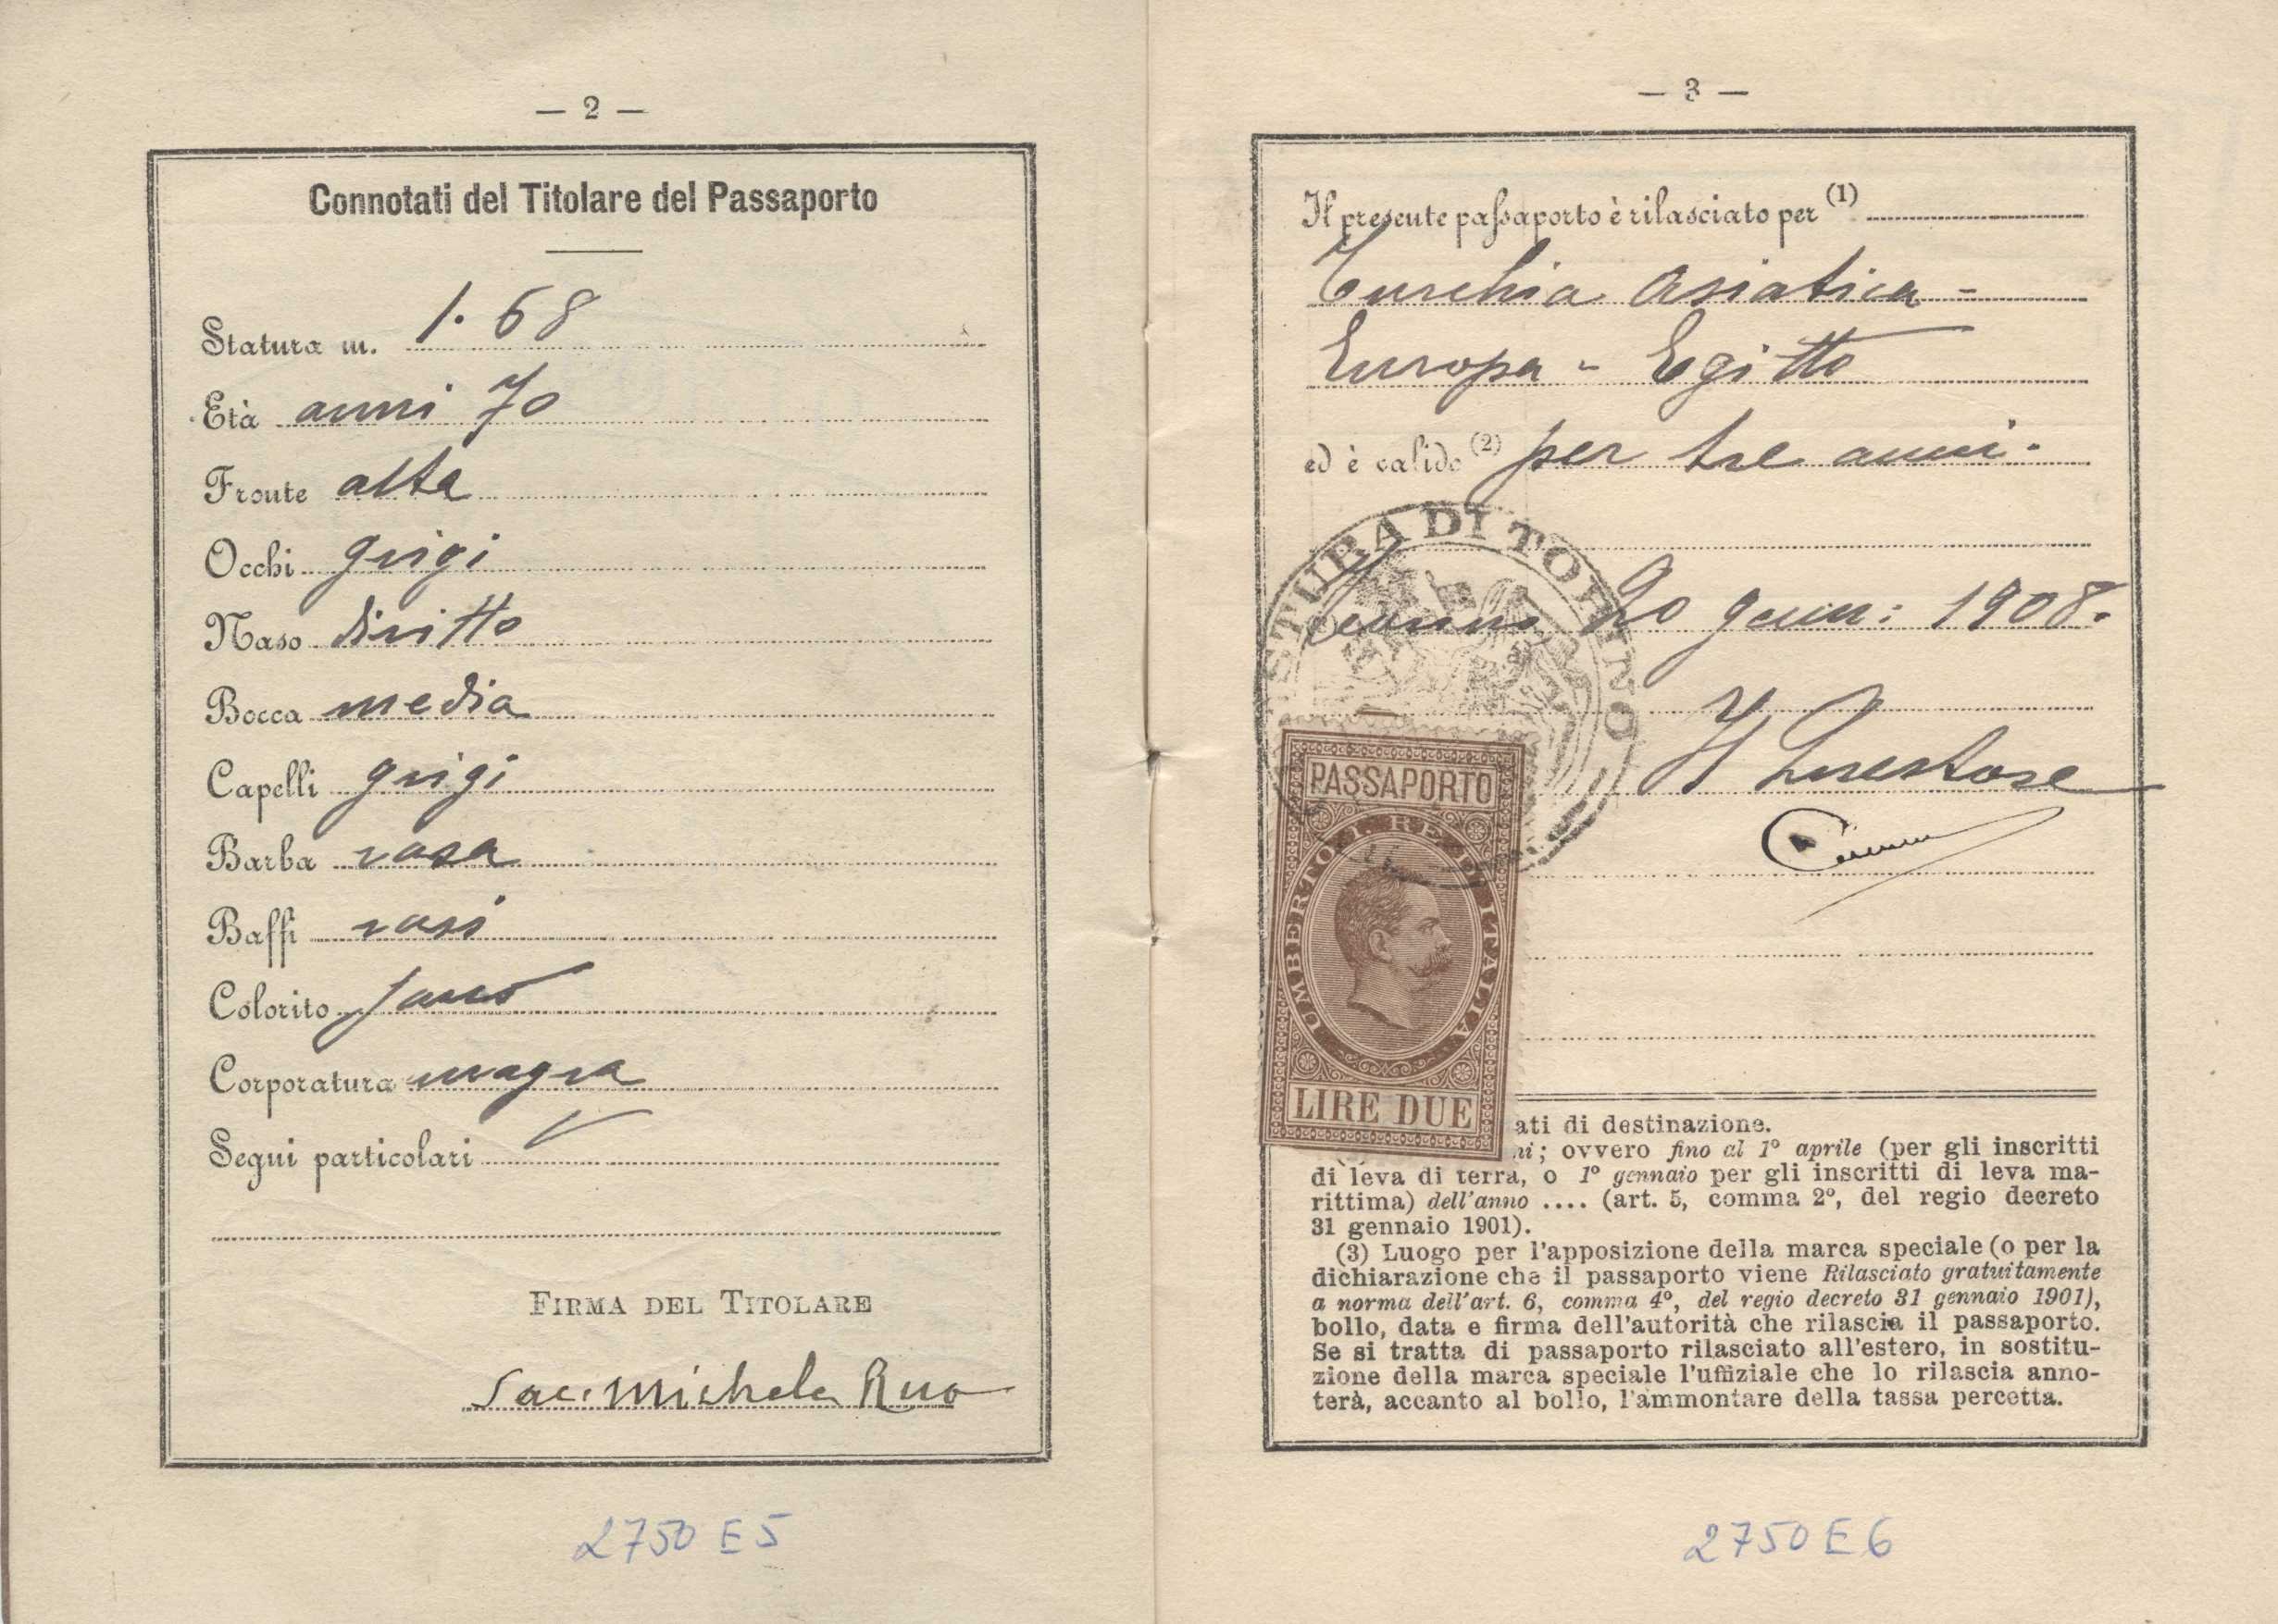 — 2 —
Connotati del Titolare del Passaporto
Statura m. 1.68
Età anni 70
Fronte alta
Occhi grigi
Naso diritto
Bocca media
Capelli grigi
Barba rasa
Baffi rasi
Colorito sano
Corporatura magra
Segni particolari
FIRMA DEL TITOLARE
Sac. Michele Rua
2750 E5
— 3 —
Il presente passaporto è rilasciato per (1)
Turchia Asiatica -
Europa - Egitto
ed è valido (2) per tre anni.
STURA DI TORINO
Torino 20 genn: 1908.
Il Questore
PASSAPORTO
UMBERTO I. RE DI ITALIA
LIRE DUE
ati di destinazione.
ni; ovvero fino al 1º aprile (per gli inscritti
di leva di terra, o 1º gennaio per gli inscritti di leva ma-
rittima) dell'anno .... (art. 5, comma 2º, del regio decreto
31 gennaio 1901).
(3) Luogo per l'apposizione della marca speciale (o per la
dichiarazione che il passaporto viene Rilasciato gratuitamente
a norma dell'art. 6, comma 4º, del regio decreto 31 gennaio 1901),
bollo, data e firma dell'autorità che rilascia il passaporto.
Se si tratta di passaporto rilasciato all'estero, in sostitu-
zione della marca speciale l'uffiziale che lo rilascia anno-
terà, accanto al bollo, l'ammontare della tassa percetta.
2750 E6